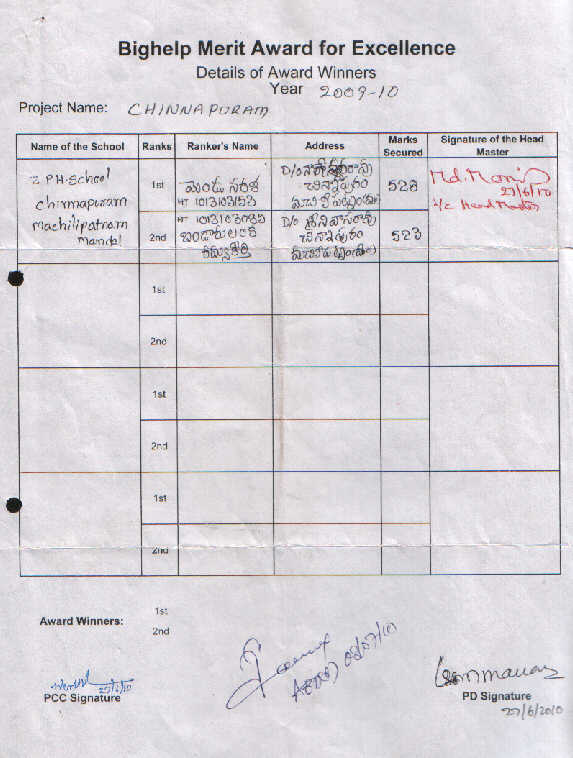 Bighelp Merit Award for Excellence
Details of Award Winners
Year 2009-10
Project Name: CHINNAPURAM
Name of the School
Ranks
Ranker's Name
Address
Marks Secured
Signature of the Head Master
Z.P.H.School
chinnapuram
machilipatnam
mandal
1st
HT 1013103153
చిన్నాపురం
528
27/6/10
I/C Head Master
2nd
D/o శ్రీనివాసరావు
చిన్నాపురం
523
1st
2nd
1st
2nd
1st
2nd
Award Winners:
1st
2nd
PCC Signature
PD Signature
27/6/2010